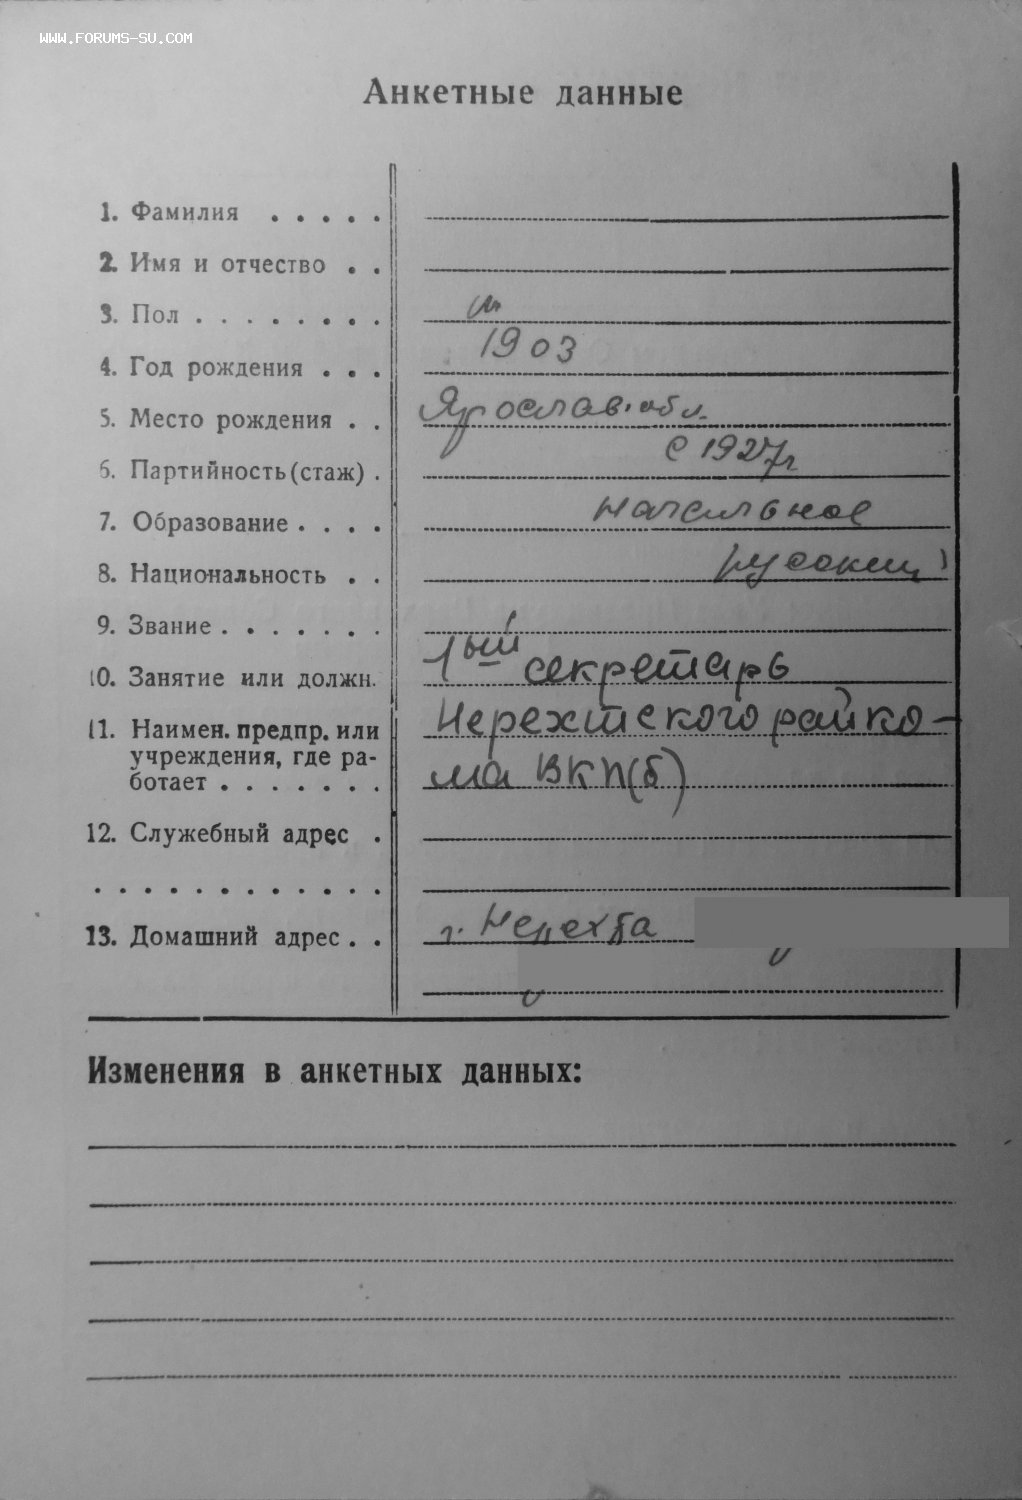 WWW.FORUMS-SU.COM
Анкетные данные
1. Фамилия . . . . .
2. Имя и отчество . .
3. Пол . . . . . . . . м
4. Год рождения . . . 1903
5. Место рождения . . Ярослав. обл.
6. Партийность (стаж) . с 1927 г
7. Образование . . . . начальное
8. Национальность . . русский
9. Звание . . . . . . .
10. Занятие или должн. 1ый секретарь
11. Наимен. предпр. или Нерехтского райко-
учреждения, где ра-
ботает . . . . . . . ма ВКП(б)
12. Служебный адрес .
. . . . . . . . . . . .
13. Домашний адрес . . г. Нерехта
Изменения в анкетных данных: